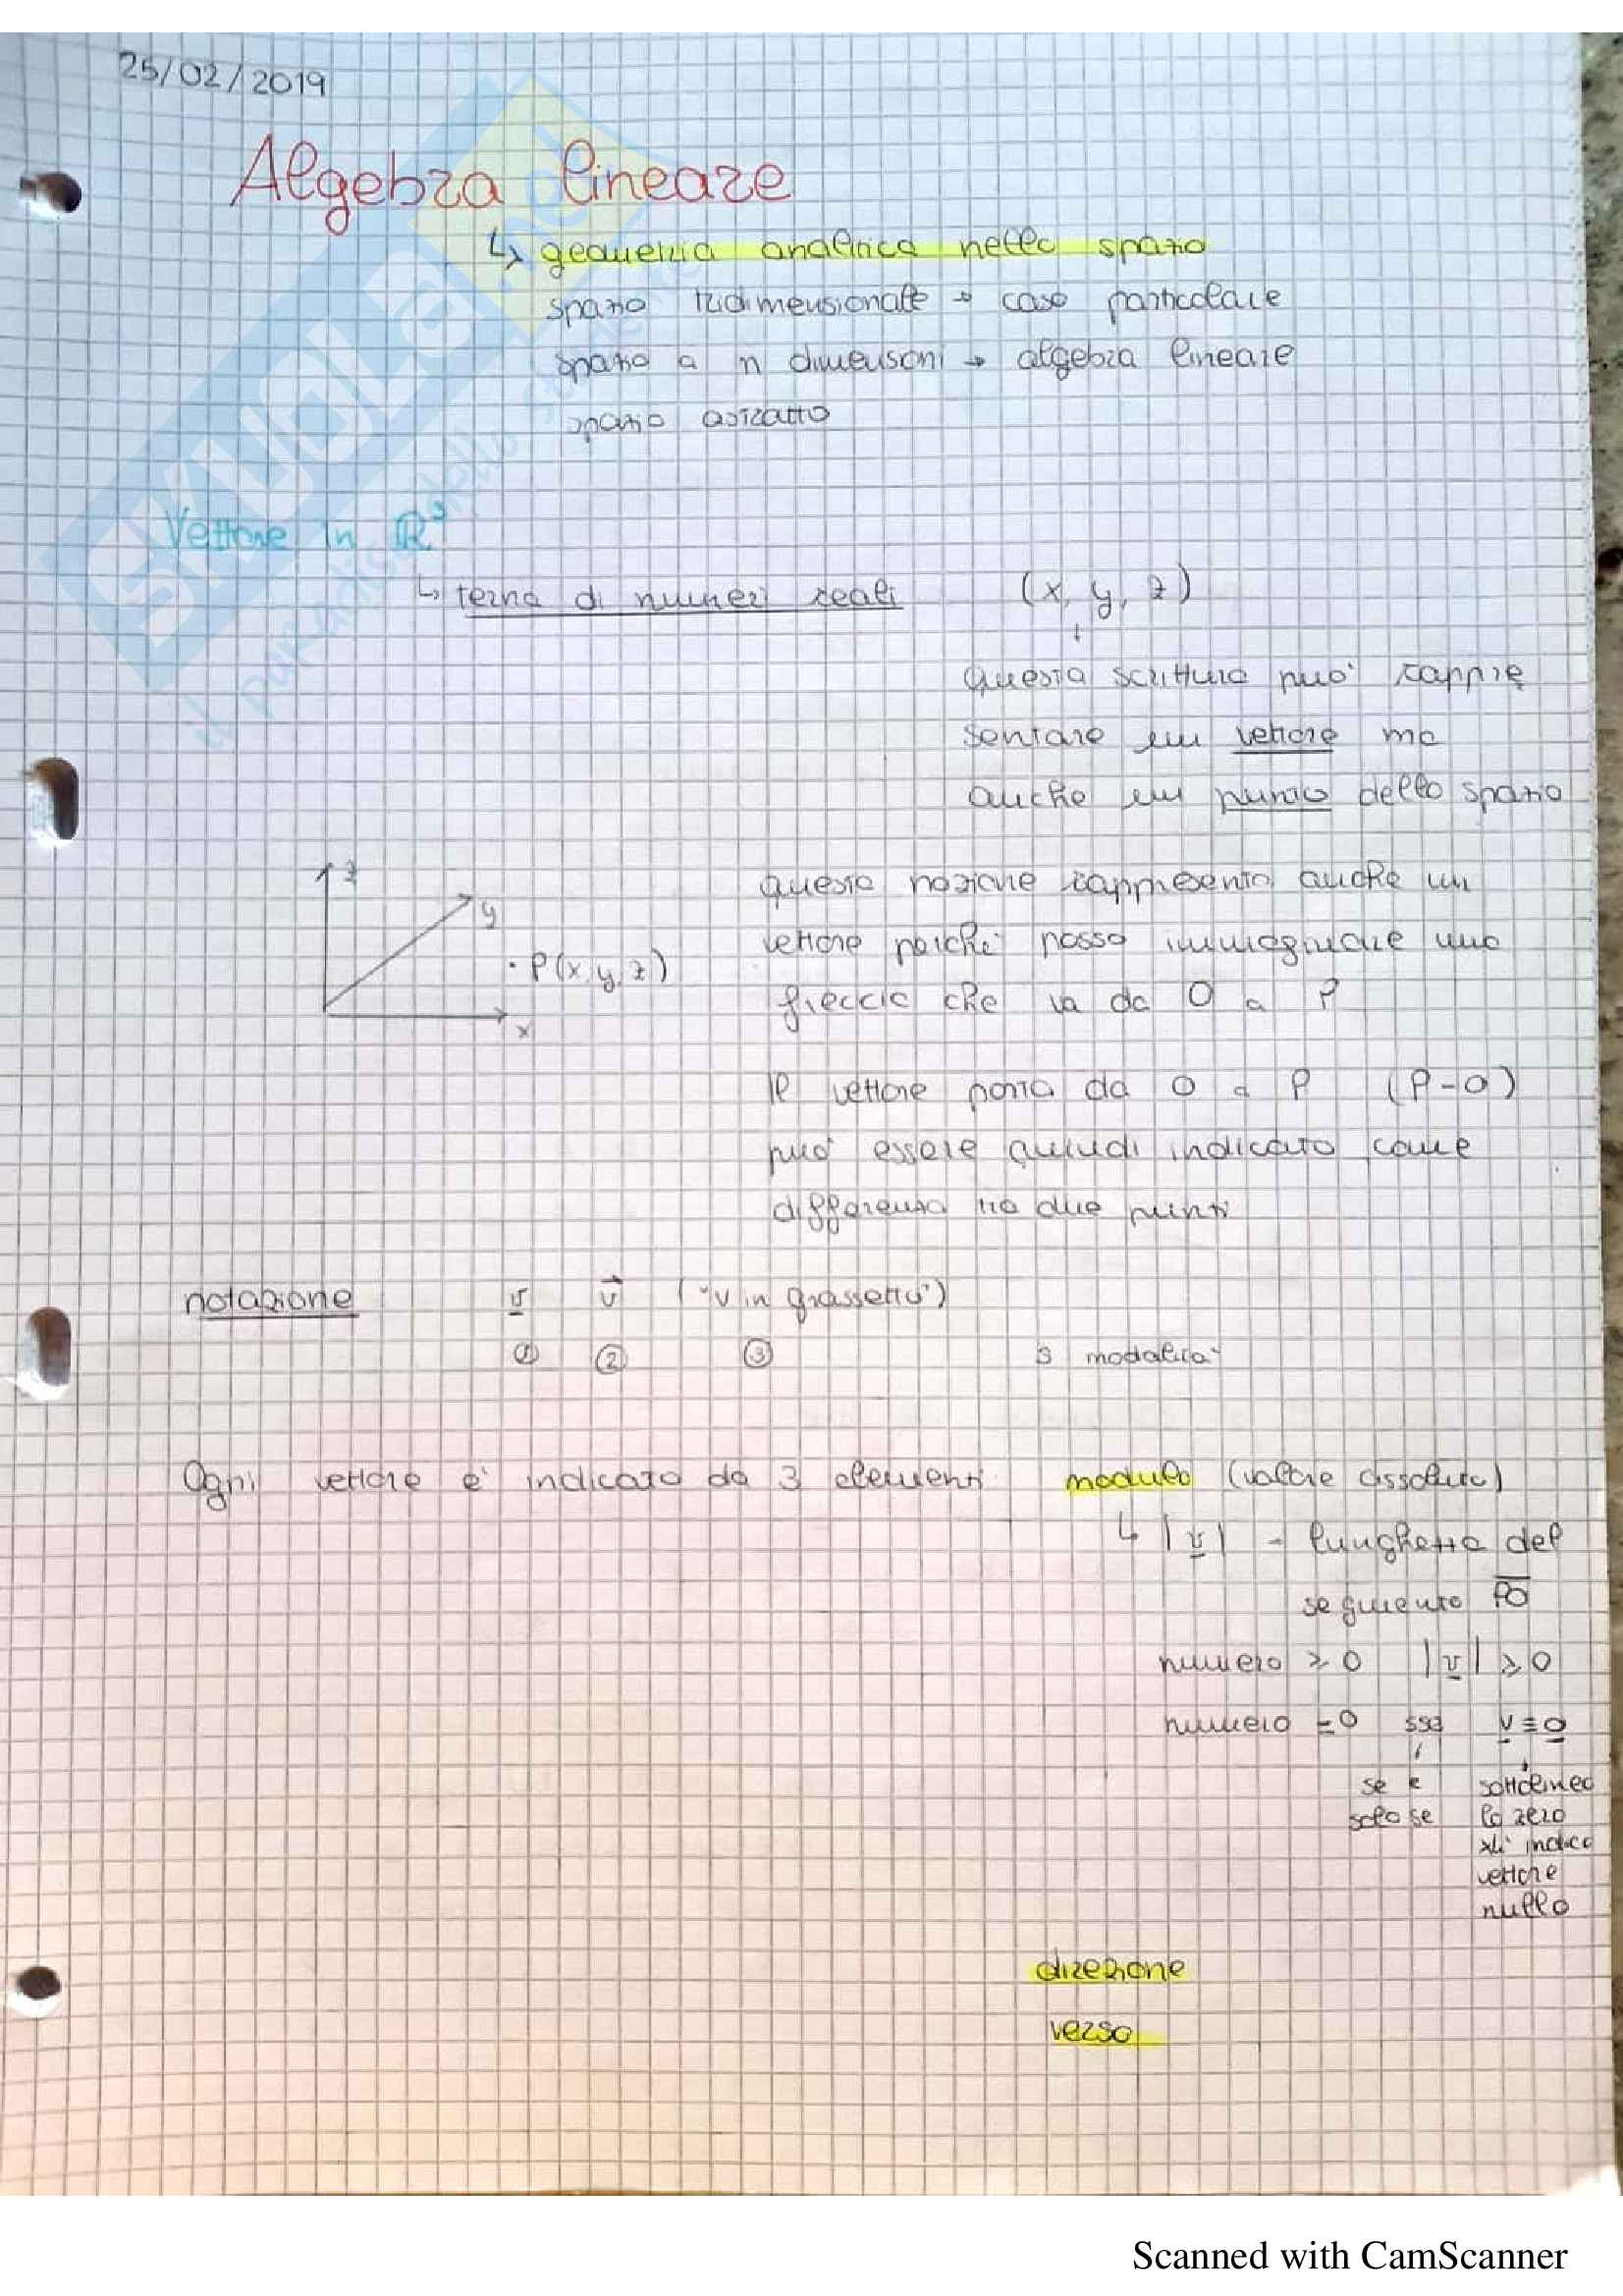 25/02/2019
Algebra lineare
↳ geometria analitica nello spazio
spazio tridimensionale → caso particolare
spazio a n dimensioni → algebra lineare
spazio astratto
Vettore in ℝ³
↳ terna di numeri reali (x, y, z)
Questa scrittura può rappre
sentare un vettore ma
anche un punto dello spazio
z
y
P(x, y, z)
x
questa nozione rappresenta anche un
vettore perché posso immaginare una
freccia che va da O a P
Il vettore porta da O a P (P-O)
può essere quindi indicato come
differenza tra due punti
notazione v v⃗ ("v in grassetto")
① ② ③ 3 modalità
Ogni vettore è indicato da 3 elementi modulo (valore assoluto)
↳ |v| - lunghezza del
segmento PO
numero ≥ 0 |v| ≥ 0
numero = 0 sse v ≡ 0
se e
solo se
sottolineo
lo zero
indica
vettore
nullo
direzione
verso
SKUOLA.net
il paradiso dello studente
Scanned with CamScanner